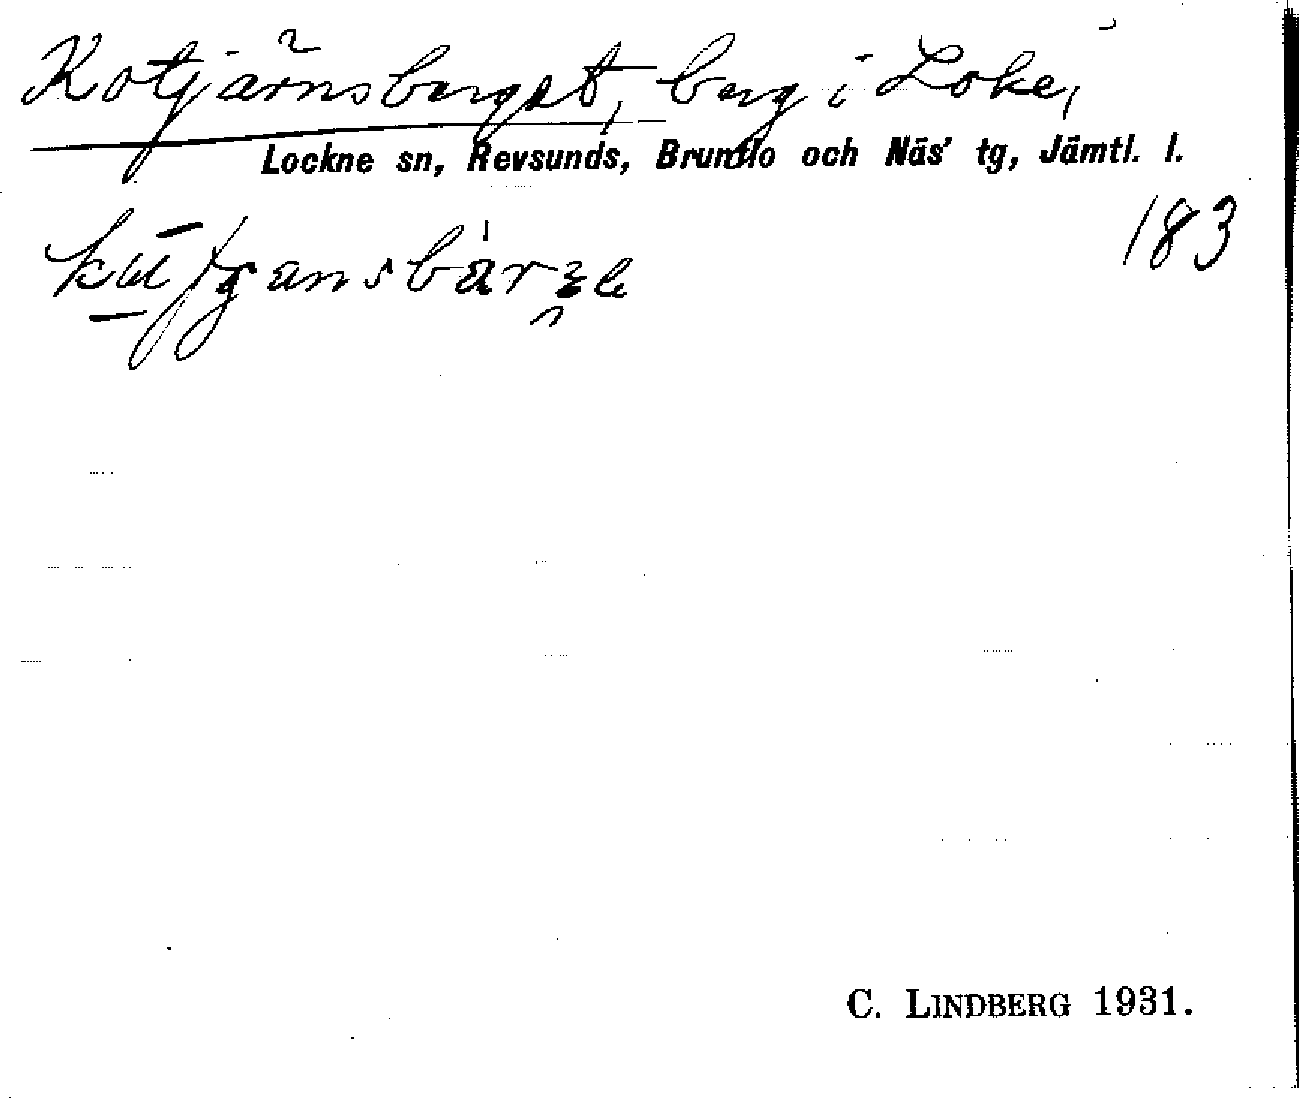 Kotjärnsberget, berg i Loke,
Lockne sn, Revsunds, Brunflo och Näs' tg, Jämtl. l.
183
C. LINDBERG 1931.